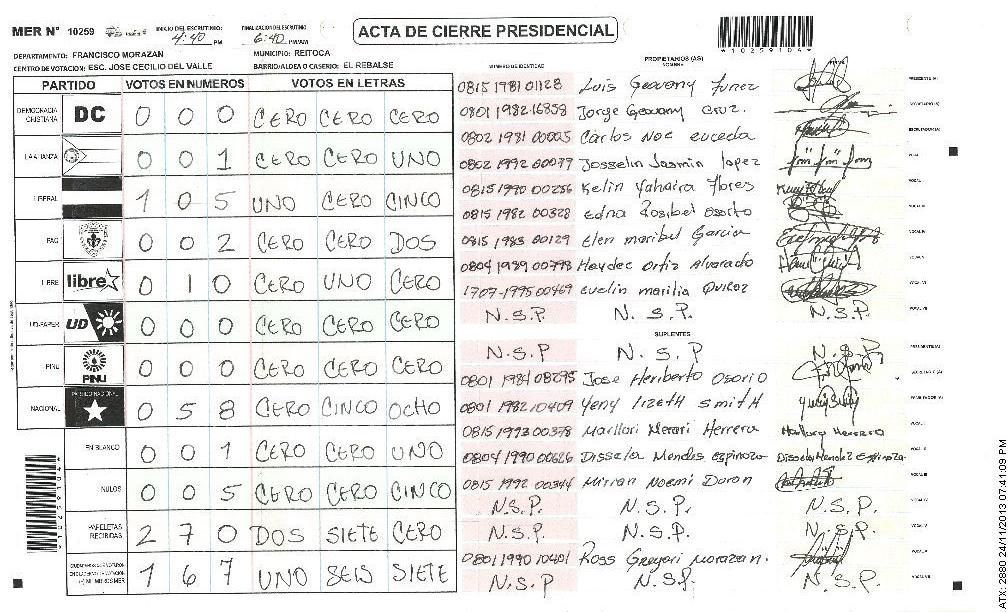 MER Nº 10259
INICIO DEL ESCRUTINIO: 4:40 PM
FINALIZACION DEL ESCRUTINIO 6:40 PM/AM
ACTA DE CIERRE PRESIDENCIAL
*10259104*
DEPARTAMENTO: FRANCISCO MORAZAN
MUNICIPIO: REITOCA
CENTRO DE VOTACION: ESC. JOSE CECILIO DEL VALLE
BARRIO/ALDEA O CASERIO: EL REBALSE
PARTIDO VOTOS EN NUMEROS VOTOS EN LETRAS
DEMOCRACIA CRISTIANA DC 0 0 0 CERO CERO CERO
LA ALIANZA 0 0 1 CERO CERO UNO
LIBERAL 1 0 5 UNO CERO CINCO
PAC 0 0 2 CERO CERO DOS
LIBRE libre 0 1 0 CERO UNO CERO
UD-FAPER UD 0 0 0 CERO CERO CERO
PINU PINU 0 0 0 CERO CERO CERO
NACIONAL PARTIDO NACIONAL 0 5 8 CERO CINCO OCHO
EN BLANCO 0 0 1 CERO CERO UNO
NULOS 0 0 5 CERO CERO CINCO
PAPELETAS RECIBIDAS 2 7 0 DOS SIETE CERO
1 6 7 UNO SEIS SIETE
NUMERO DE IDENTIDAD
PROPIETARIOS (AS)
NOMBRE
0815 1981 01128 Luis Geovany Funez PRESIDENTE (A)
0801 1982 16858 Jorge Geovany Cruz. SECRETARIO (A)
0802 1981 00005 Carlos Noe euceda ESCRUTADOR (A)
0802 1992 00079 Josselin Jasmin lopez VOCAL I
0815 1990 00256 Kelin Yahaira Flores VOCAL II
0815 1982 00328 Edna Rosibel Osorto VOCAL III
0815 1983 00129 Elen maribel Garcia VOCAL IV
0804 1989 00798 Haydee Ortiz Alvarado VOCAL V
1707-1995 00469 Evelin marilia Quiroz VOCAL VI
N.S.P. N. S.P. N.S.P. VOCAL VII
SUPLENTES
N.S.P N. S. P N.S.P PRESIDENTE (A)
0801 1984 08295 Jose Heriberto Osorio SECRETARIO (A)
0801 1982 10409 Yeny lizeth Smith ESCRUTADOR (A)
0815 1993 00378 Marllori Merari Herrera Marllory Herrera VOCAL I
0804 1990 00626 Dissela Mendes Espinoza Dissela Mendez Espinoza VOCAL II
0815 1992 00344 Mirian Noemi Duron VOCAL III
N.S.P. N.S.P. N.S.P. VOCAL IV
N.S.P. N.S.P. N.S.P. VOCAL V
0801 1990 10401 Ross Gregori Morazan. VOCAL VI
N.S.P N.S.P. N.S.P. VOCAL VII
*10259104*
ATX-2880 24/11/2013 07:41:09 PM